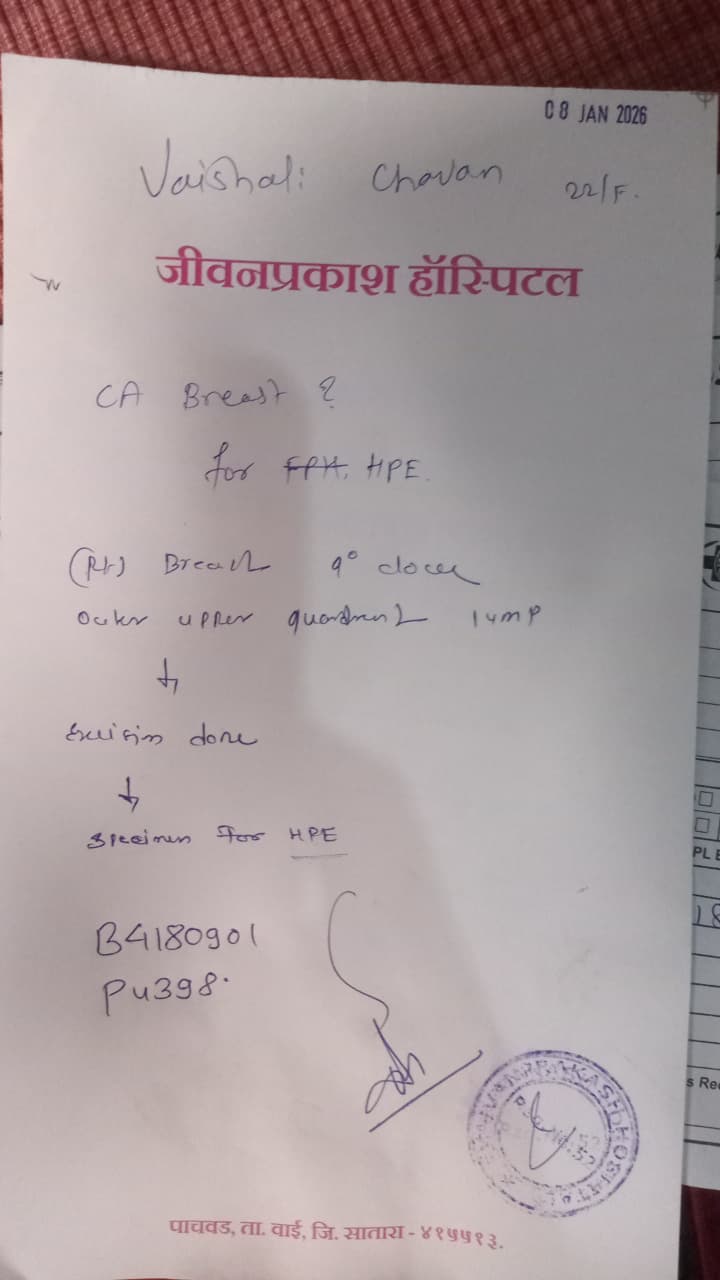 08 JAN 2026
Vaishali Chavan 22/F.
जीवनप्रकाश हॉस्पिटल
CA Breast ?
for FPH. HPE.
(Rt) Breast 9° clock
outer upper quadrent lump
Excision done
specimen for HPE
B4180901
PU398.
JEEVANPRAKASH HOSPITAL
पाचवड, ता. वाई, जि. सातारा - ४१५५१३.
PLE
18
s Rec